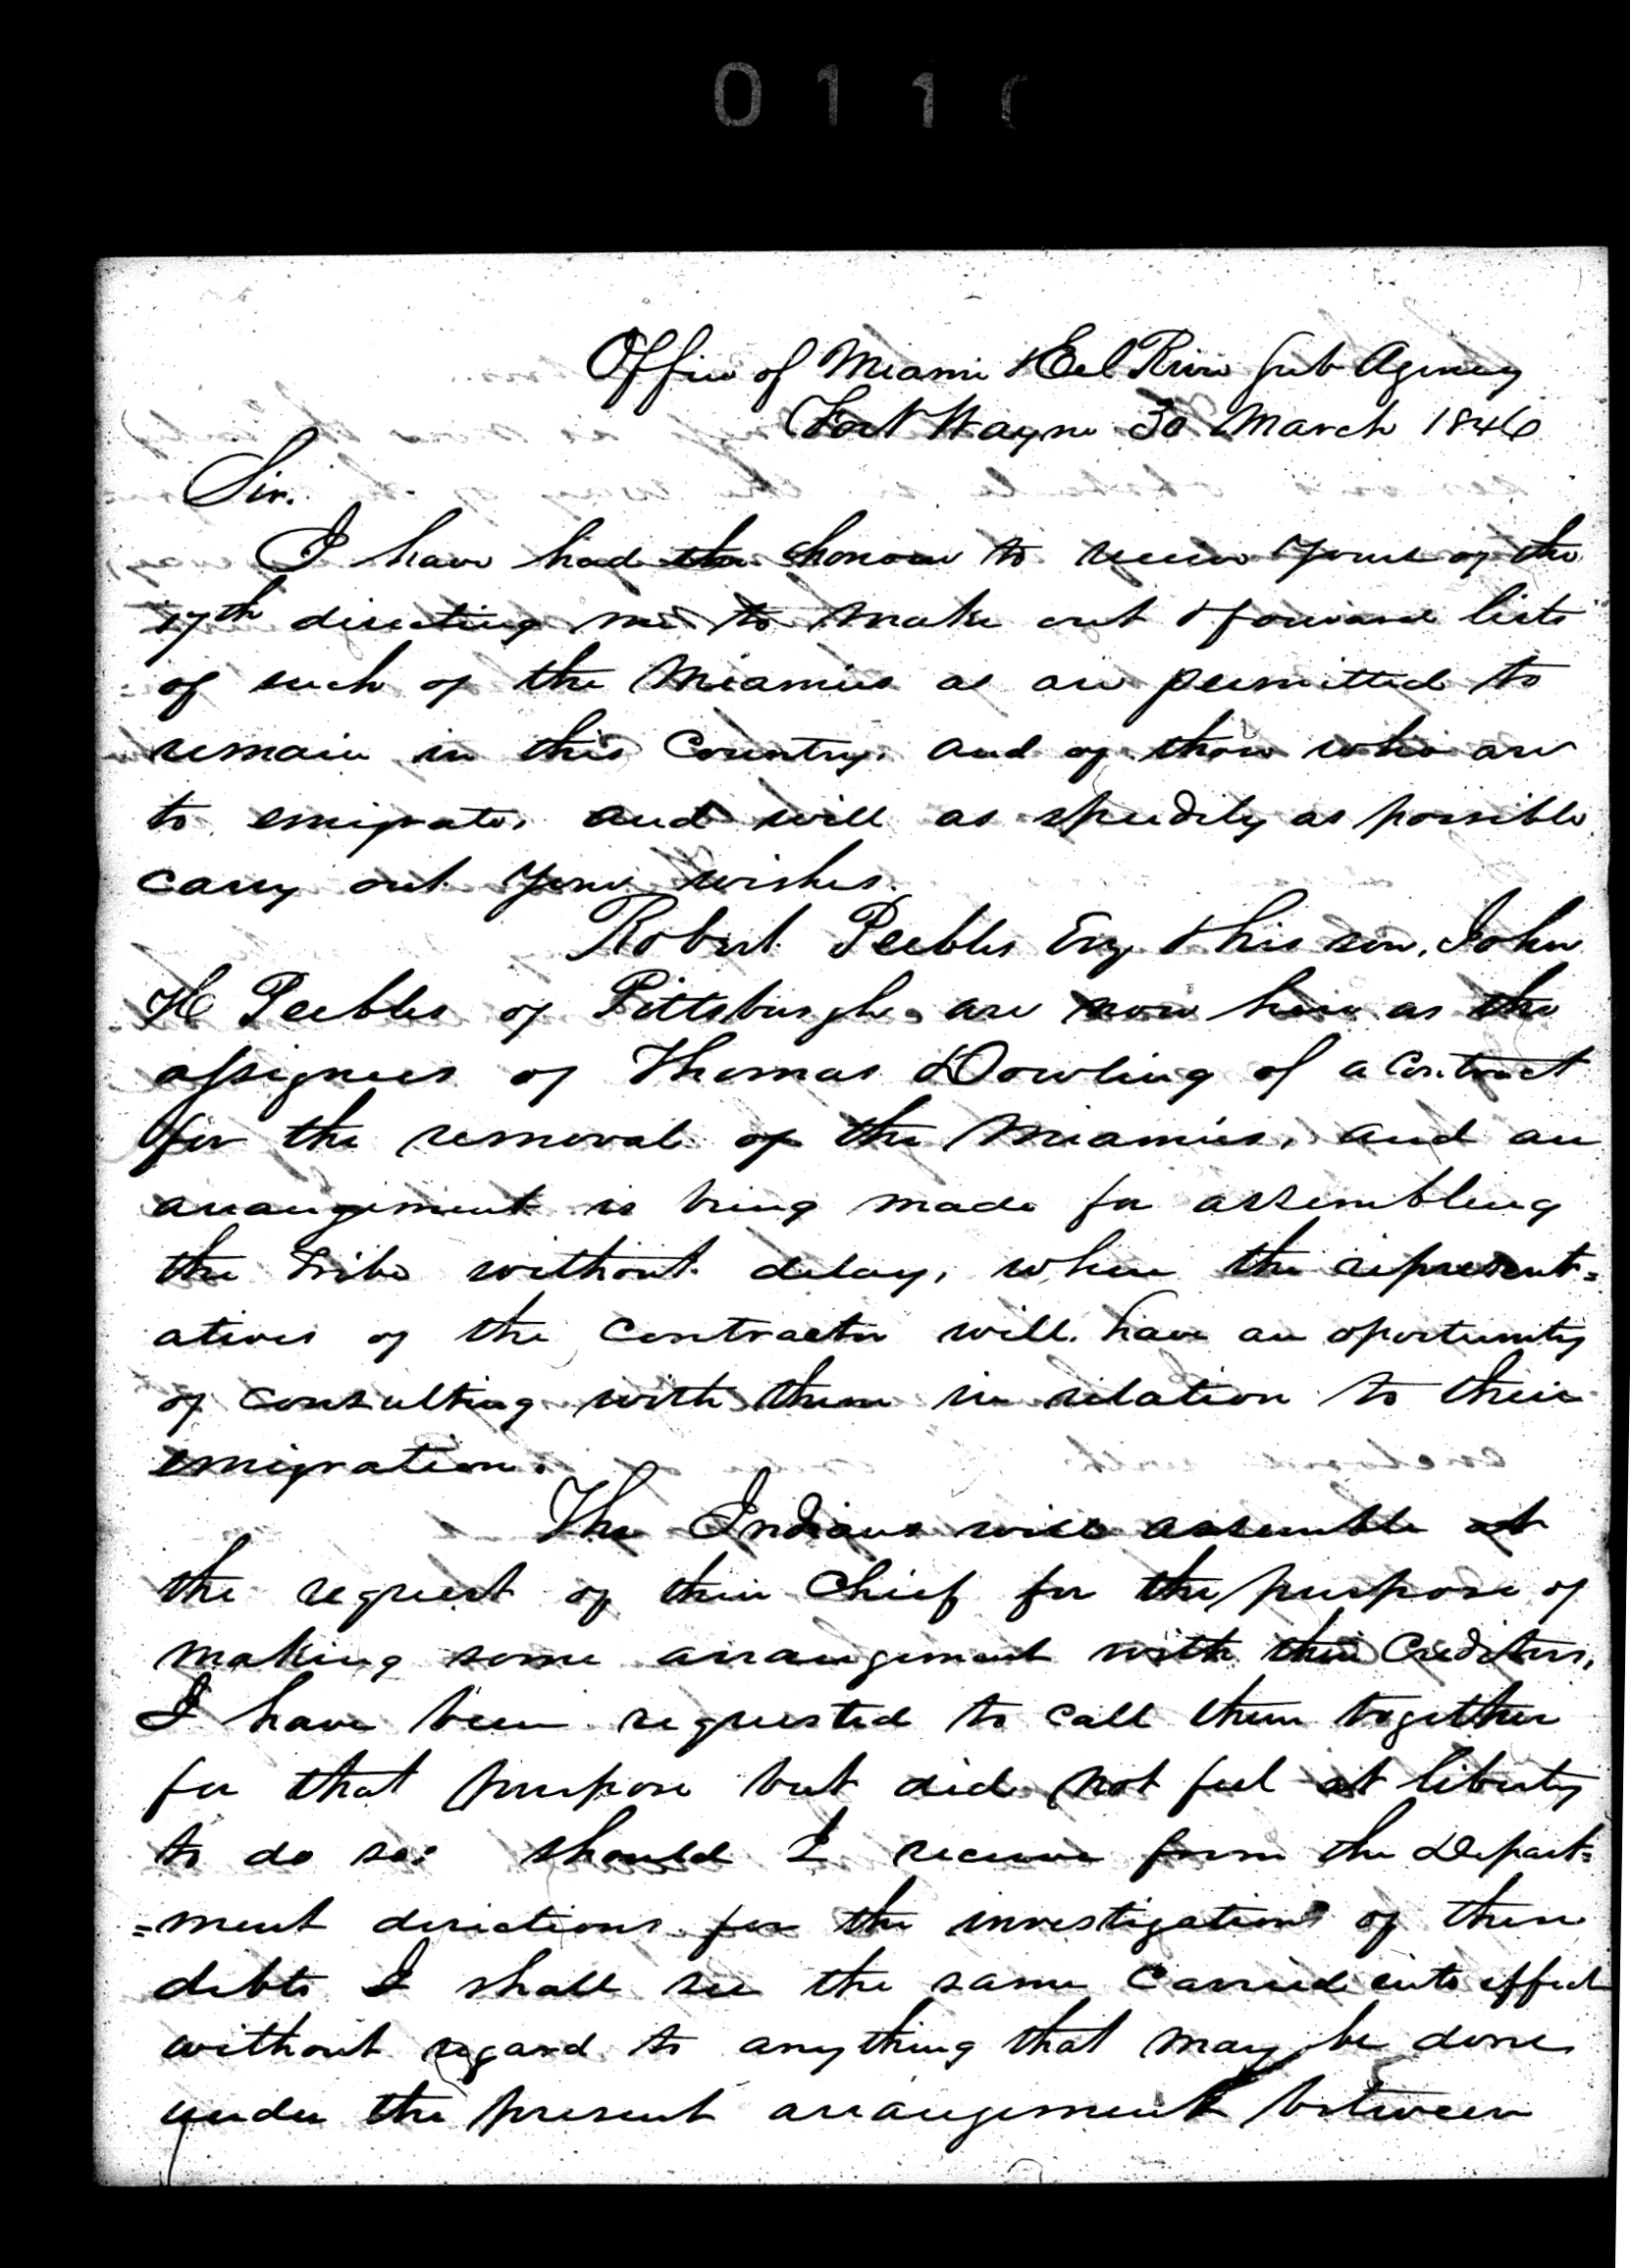 011
Office of Miami & Eel River Sub Agency
Fort Wayne 30 March 1846
Sir.
I have had the honour to receive yours of the
17th directing me to make out & forward lists
of such of the Miamies as are permitted to
remain in this Country. and of those who are
to emigrate, and will as speedily as possible
carry out your wishes.
Robert Peebles Esq & his son, John
H Peebles of Pittsburgh. are now here as the
assignees of Thomas Dowling of a Contract
for the removal of the Miamies, and an
arrangement is being made for assembling
the tribe without delay, where the represent=
atives of the Contractor will have an oportunity
of consulting with them in relation to their
emigration.
The Indians will assemble at
the request of their Chief for the purpose of
making some arrangement with their Creditors,
I have been requested to call them together
for that purpose but did not feel at liberty
to do so: should I receive from the Depart=
=ment directions for the investigation of these
debts I shall see the same Carried into effect
without regard to anything that may be done
under the present arrangement between